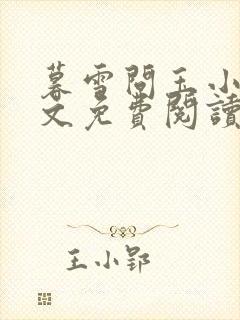 暮雪問玉小
文免費閱讀
王小郢